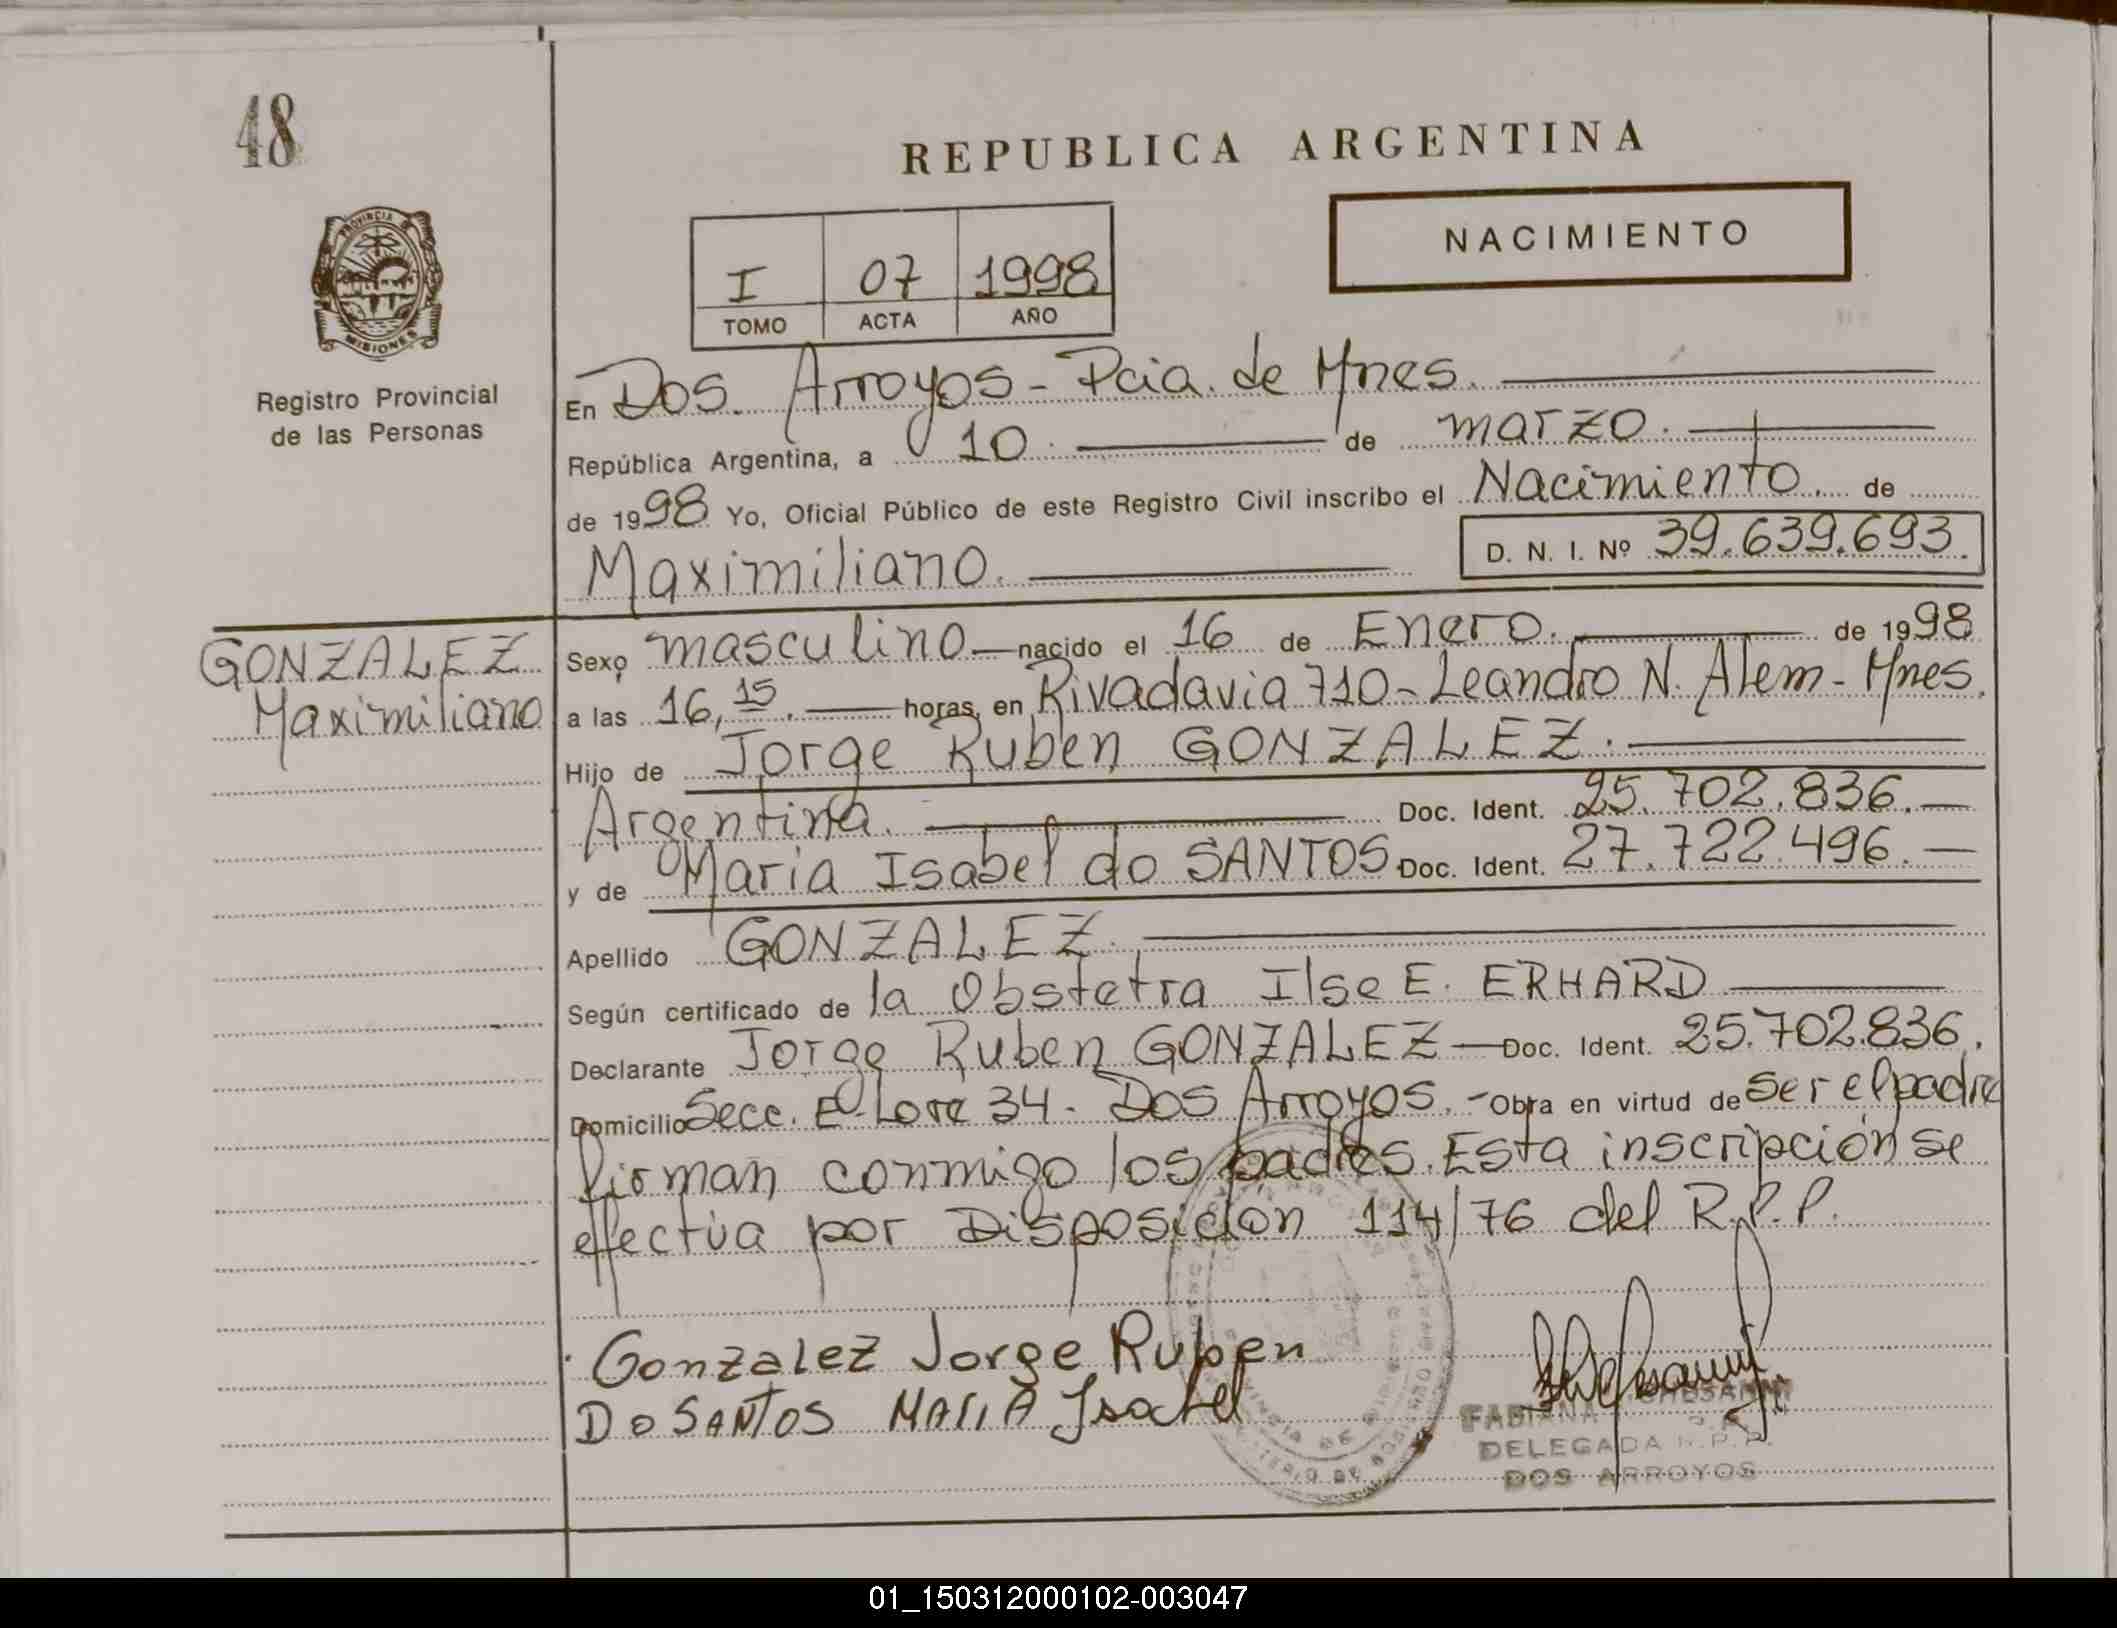 48
REPUBLICA ARGENTINA
NACIMIENTO
I 07 1998
TOMO ACTA AÑO
PROVINCIA DE
MISIONES
Registro Provincial
de las Personas
En Dos Arroyos - Pcia. de Mnes.
República Argentina, a 10 de marzo.
de 1998 Yo, Oficial Público de este Registro Civil inscribo el Nacimiento. de
Maximiliano. D. N. I. Nº 39.639.693.
GONZALEZ
Maximiliano
Sexo masculino nacido el 16 de Enero. de 1998
a las 16,15. horas, en Rivadavia 710 - Leandro N. Alem - Mnes.
Hijo de Jorge Ruben GONZALEZ.
Argentina. Doc. Ident. 25.702.836.
y de Maria Isabel do SANTOS Doc. Ident. 27.722.496.
Apellido GONZALEZ.
Según certificado de la Obstetra Ilse E. ERHARD
Declarante Jorge Ruben GONZALEZ Doc. Ident. 25.702.836.
Domicilio Secc. E - Lote 34 - Dos Arroyos. - Obra en virtud de ser el padre
firman conmigo los padres. Esta inscripción se
efectúa por Disposición 114/76 del R.P.P.
Gonzalez Jorge Ruben
Do SANTOS MARIA Isabel
FABIANA
DELEGADA R.P.P.
DOS ARROYOS
01_150312000102-003047